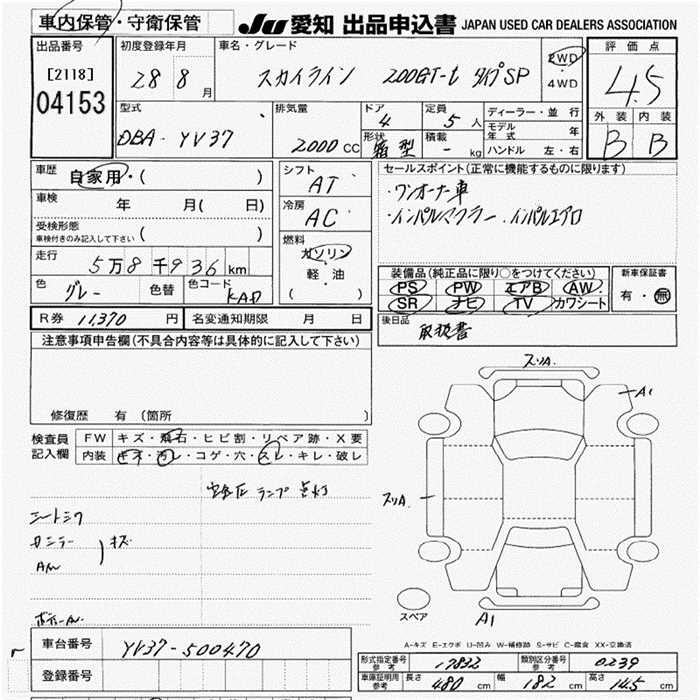 車内保管・守衛保管 JU 愛知 出品申込書 JAPAN USED CAR DEALERS ASSOCIATION
出品番号 初度登録年月 車名・グレード 評価点
[2118] 28 8月 スカイライン 200GT-t タイプSP 2WD・4WD 4.5
04153
型式 排気量 ドア 定員 ディーラー・並行 外装 内装
DBA-YV37 2000CC 4 5人 モデル年式 年 B B
形状 箱型 積載 - kg ハンドル 左・右
車歴 自家用・( ) シフト AT セールスポイント(正常に機能するものに限ります)
車検 年 月( 日) 冷房 AC ・ワンオーナー車
受検形態 ( ) ・インパルマフラー、インパルエアロ
車検付きのみ記入して下さい
燃料 ガソリン・軽油 ( )
走行 5万8千936km
装備品(純正品に限り○をつけてください) 新車保証書
PS PW エアB AW 有・無
SR ナビ TV カワシート
色 グレー 色替 色コード KAD
R券 11,370円 名変通知期限 月 日 後日品 取扱書
注意事項申告欄(不具合内容等は具体的に記入して下さい)
修復歴 有 (箇所 )
検査員記入欄 FW キズ・飛石・ヒビ割・リペア跡・X要
内装 キズ・汚レ・コゲ・穴・スレ・キレ・破レ
空気圧ランプ点灯
シートシワ
キズ
スリA
A1
スリA
A1
スペア
A-キズ E-エクボ U-凹み W-補修跡 S-サビ C-腐食 XX-交換済
車台番号 YV37-500470
登録番号
形式指定番号 参考 17832 類別区分番号 参考 0239
車庫証明用 参考 長さ 480cm 幅 182cm 高さ 145cm